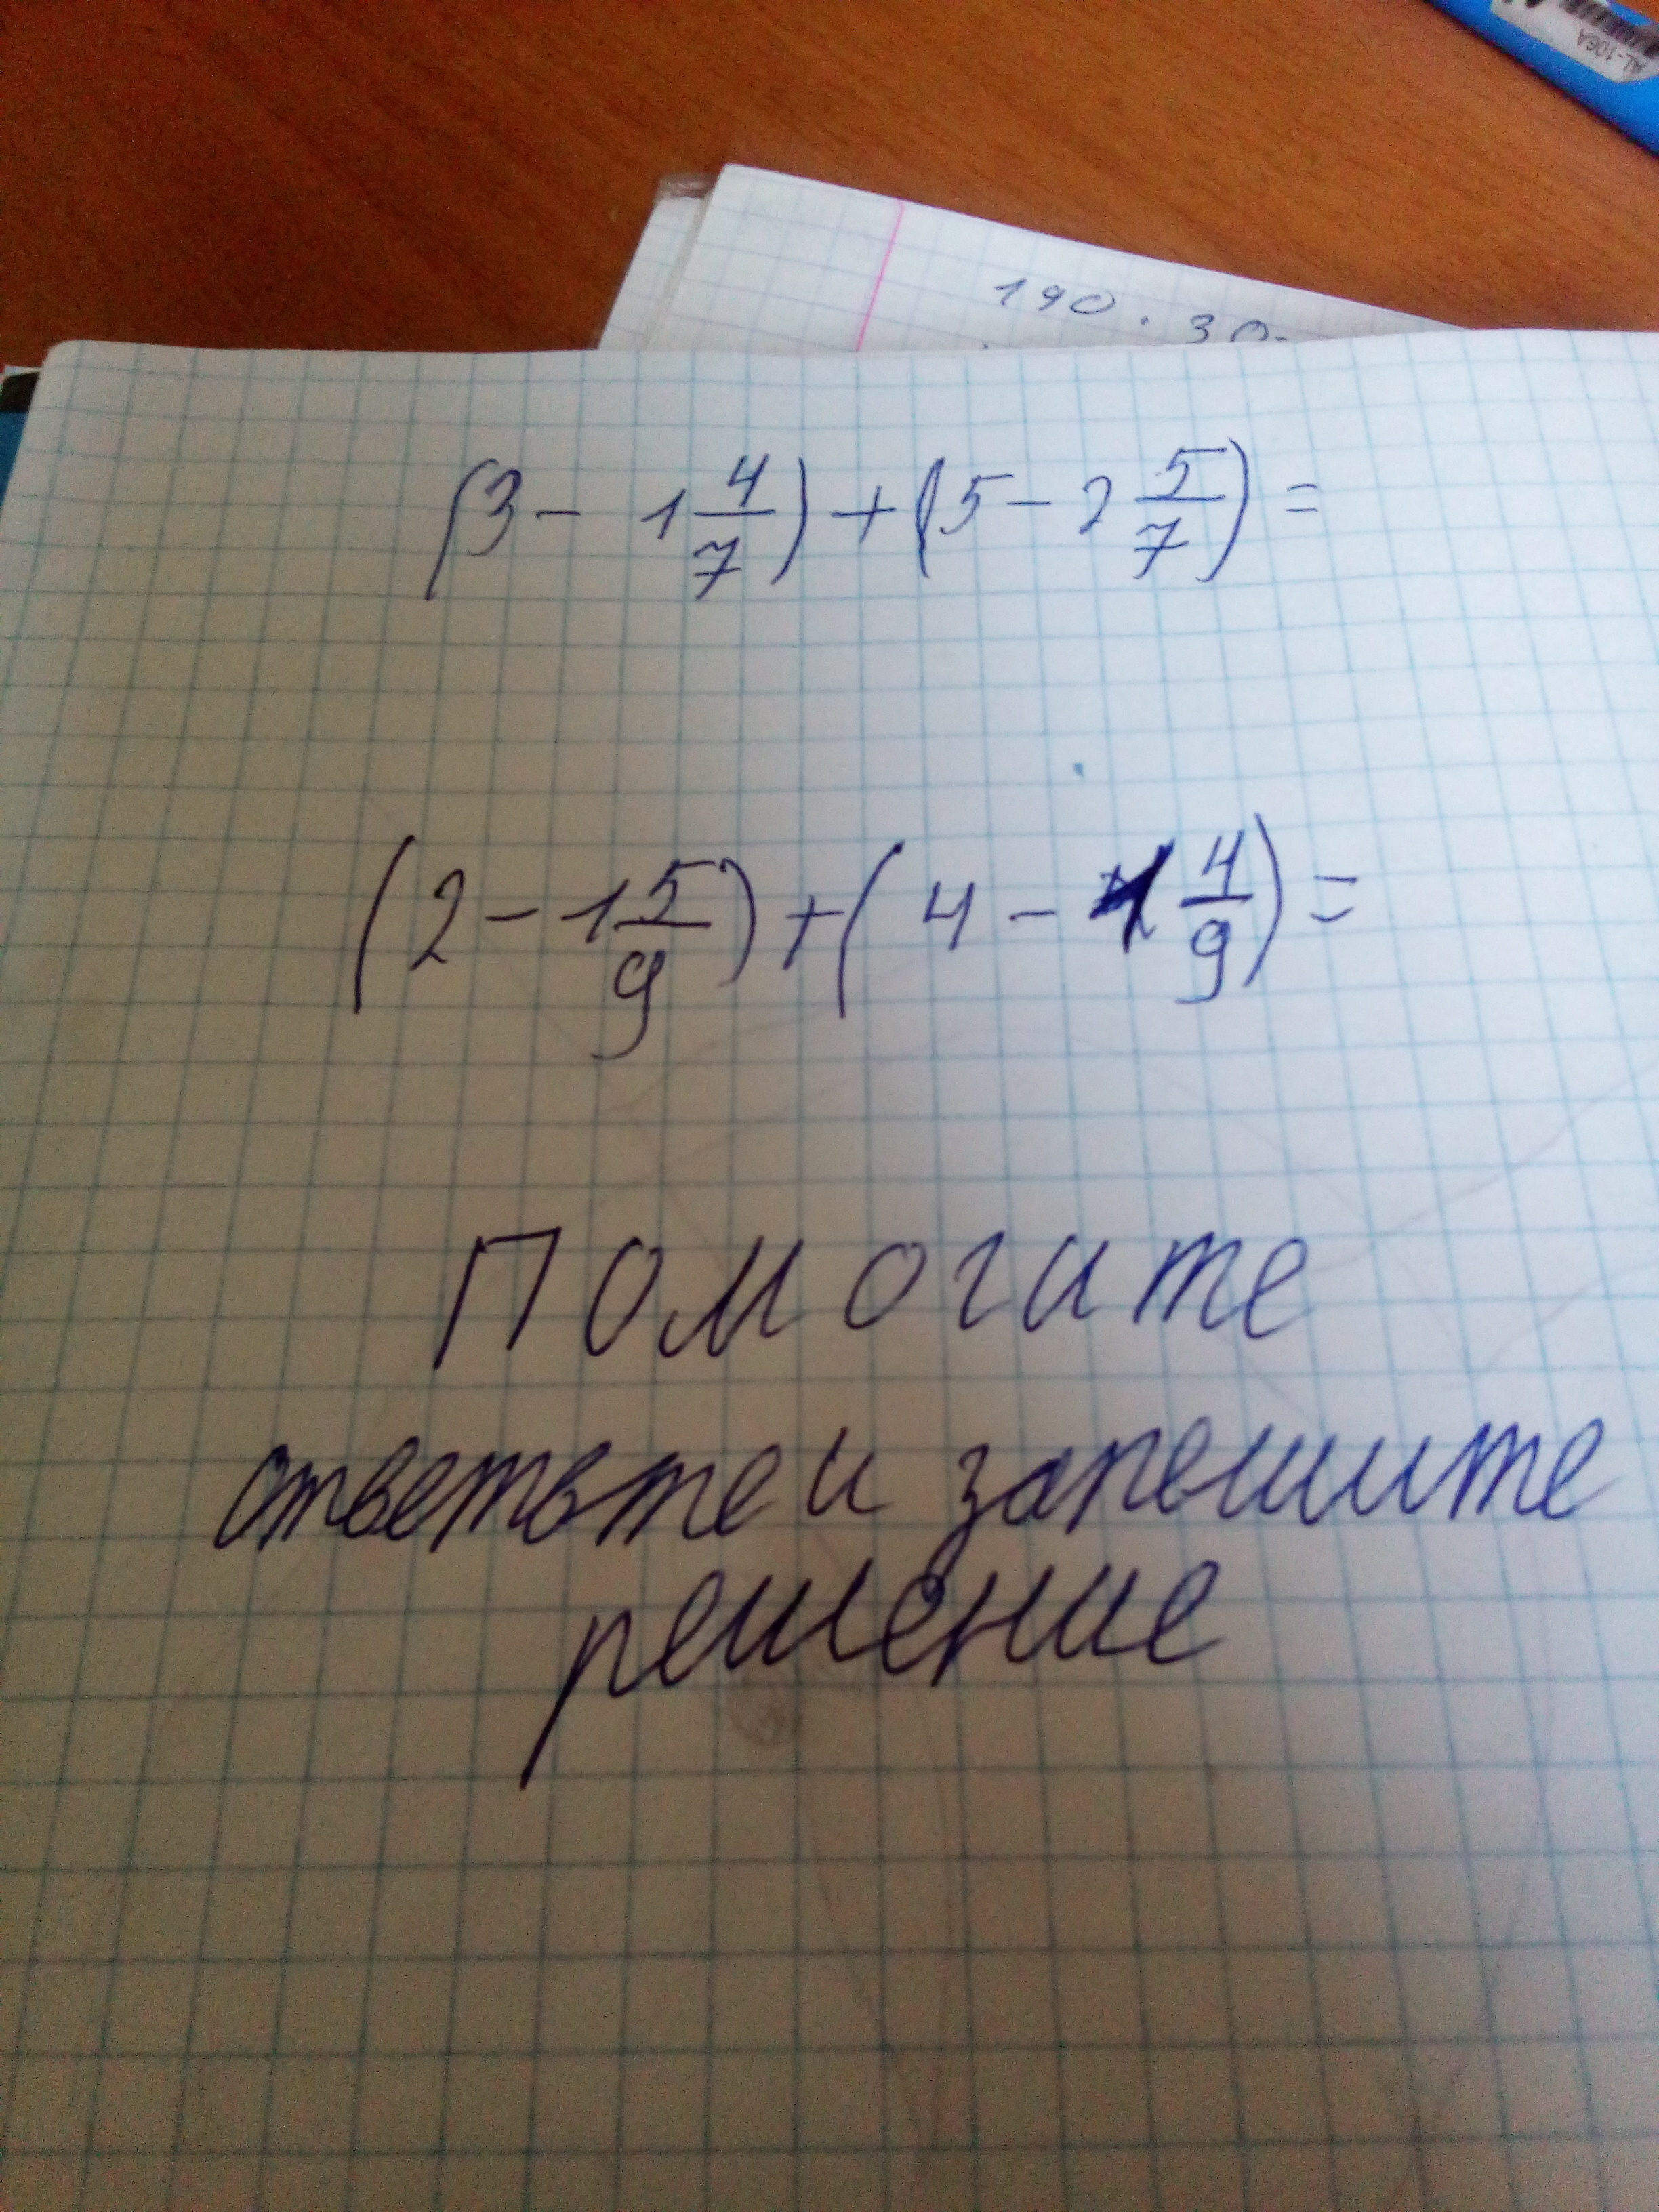 AL-106A
190 · 30
(3 - 1 4/7) + (5 - 2 5/7) =
(2 - 1 5/9) + (4 - 1 4/9) =
Помогите
ответьте и запешите
решение